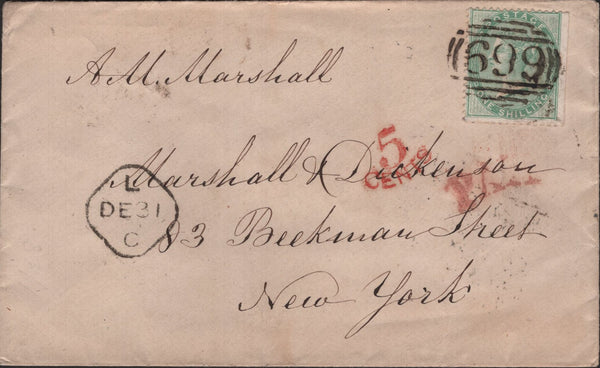 POSTAGE
699
ONE SHILLING
A. M. Marshall
5
CENTS
Marshall & Dickenson
L
DE 31
C
83 Beekman Street
New York